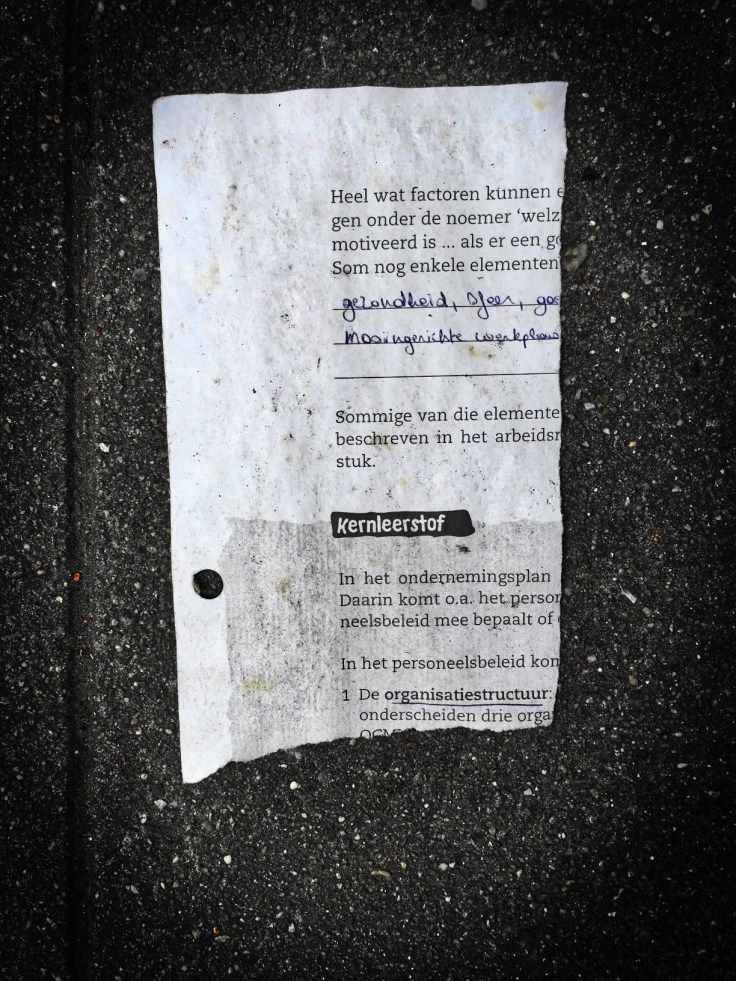 Heel wat factoren kunnen e
gen onder de noemer 'welz
motiveerd is ... als er een go
Som nog enkele elementen
gezondheid, sfeer, goe
mooiingerichte werkplaats
Sommige van die elemente
beschreven in het arbeidsr
stuk.
Kernleerstof
In het ondernemingsplan
Daarin komt o.a. het person
neelsbeleid mee bepaalt of
In het personeelsbeleid kon
1 De organisatiestructuur:
onderscheiden drie orga